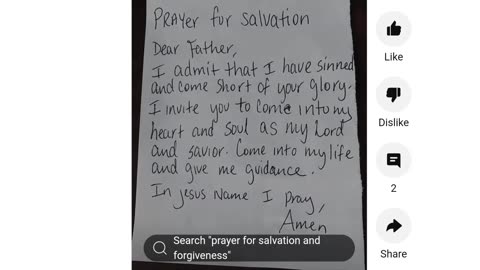 PRAYer for salvation
Dear Father,
I admit that I have sinned
and come short of your glory.
I invite you to come into my
heart and soul as my Lord
and savior. Come into my life
and give me guidance.
In Jesus Name I Pray,
Amen
Search "prayer for salvation and
forgiveness"
Like
Dislike
2
Share